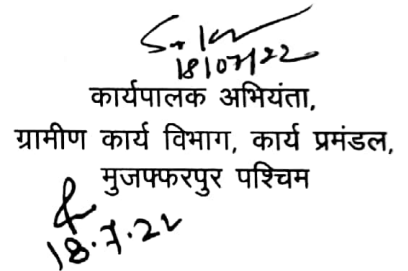 18/07/22
कार्यपालक अभियंता,
ग्रामीण कार्य विभाग, कार्य प्रमंडल,
मुजफ्फरपुर पश्चिम
18.7.22